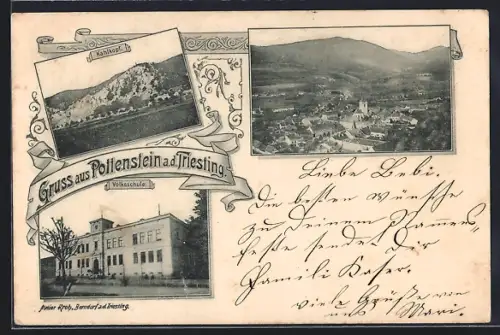 Kahlkopf.
Gruss aus Pottenstein a.d. Triesting.
Volksschule.
Atelier Groh, Berndorf a.d. Triesting.
Liebe Bebi.
Die besten wünsche
zu Deinem Namens-
feste sendet Dir
Famili Kaser.
viele Grüße von
uns Mari.